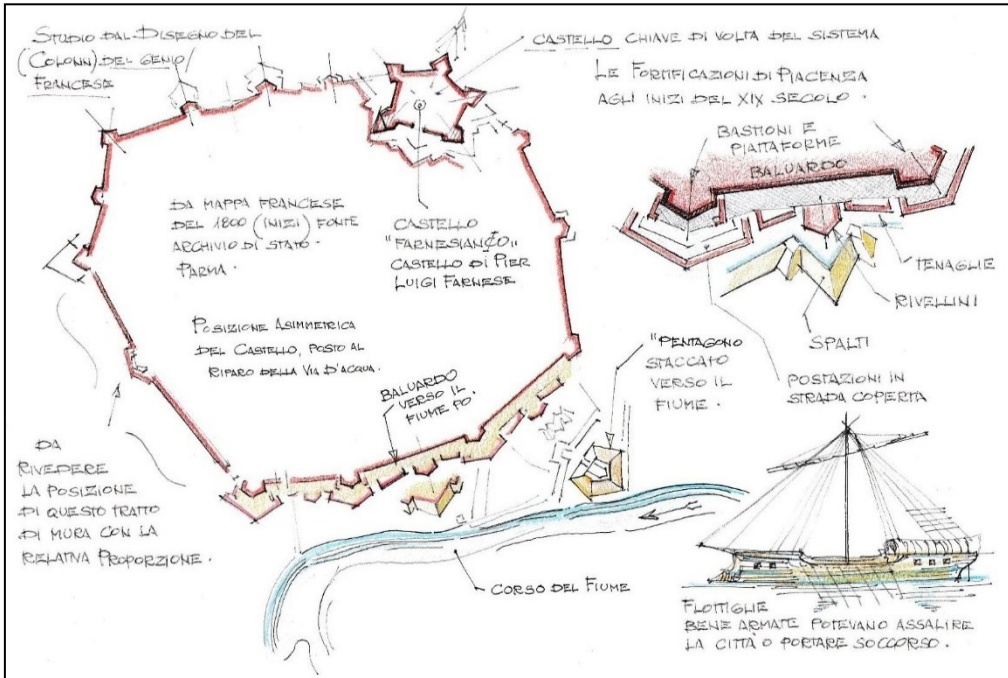 STUDIO DAL DISEGNO DEL
(COLONN) DEL GENIO/
FRANCESE
CASTELLO CHIAVE DI VOLTA DEL SISTEMA
LE FORTIFICAZIONI DI PIACENZA
AGLI INIZI DEL XIX SECOLO.
BASTIONI E
PIATTAFORME
BALUARDO
DA MAPPA FRANCESE
DEL 1800 (INIZI) FONTE
ARCHIVIO DI STATO.
PARMA.
CASTELLO
CASTELLO DI PIER
LUIGI FARNESE
TENAGLIE
RIVELLINI
SPALTI
POSTAZIONI IN
STRADA COPERTA
POSIZIONE ASIMMETRICA
DEL CASTELLO, POSTO AL
RIPARO DELLA VIA D'ACQUA.
BALUARDO
VERSO IL
FIUME PO
"PENTAGONO
STACCATO
VERSO IL
FIUME.
DA
RIVEDERE
LA POSIZIONE
DI QUESTO TRATTO
DI MURA CON LA
RELATIVA PROPORZIONE.
CORSO DEL FIUME
FLOTTIGLIE
BENE ARMATE POTEVANO ASSALIRE
LA CITTÀ O PORTARE SOCCORSO.